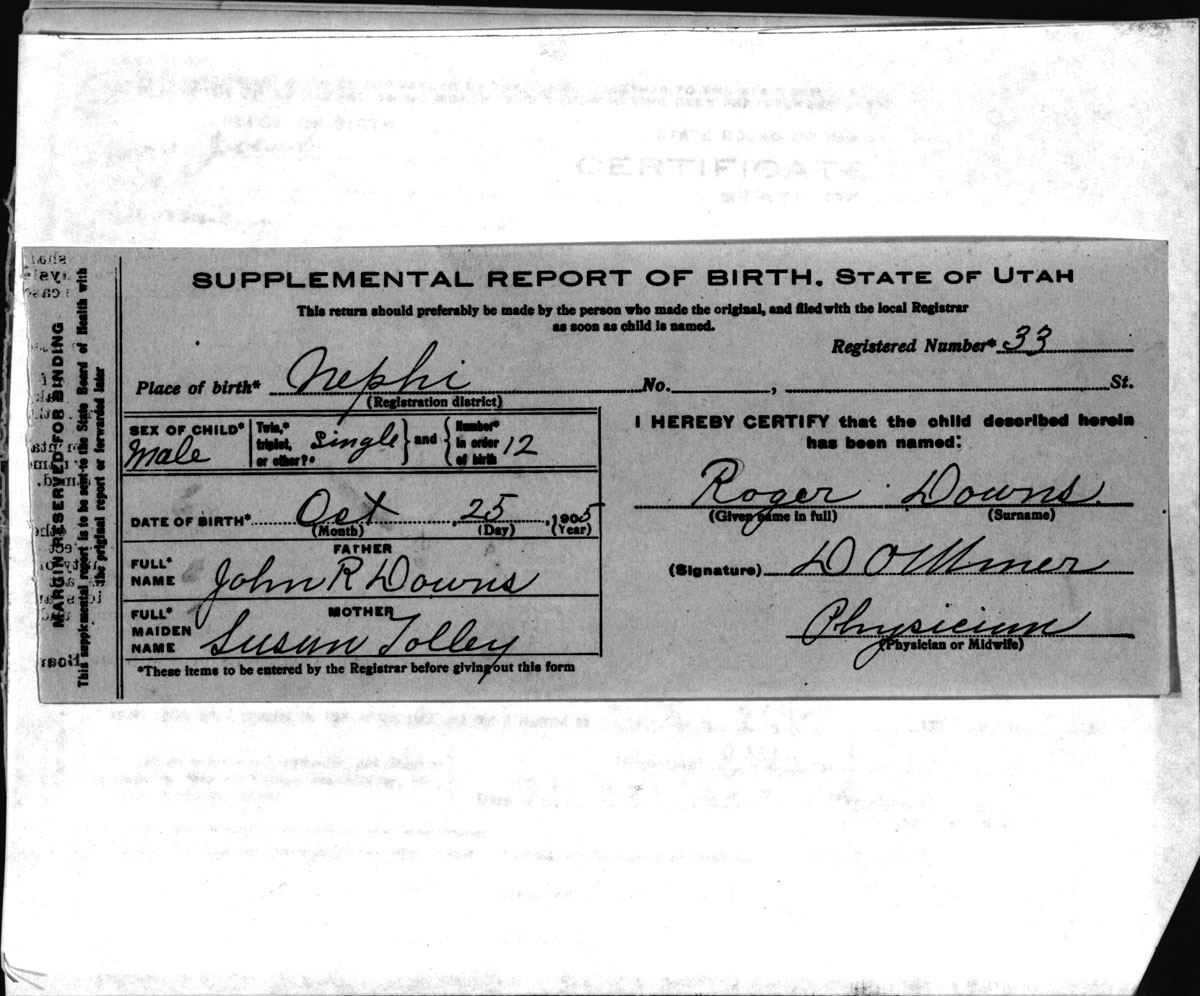 CERTIFICATE
SUPPLEMENTAL REPORT OF BIRTH. STATE OF UTAH
This return should preferably be made by the person who made the original, and filed with the local Registrar
as soon as child is named.
Registered Number* 33
Place of birth* Nephi No. , St.
(Registration district)
MARGIN RESERVED FOR BINDING
This supplemental report is to be sent to the State Board of Health with
the original report or forwarded later
SEX OF CHILD* Male
Twin,* triplet, or other?* Single } and { Number* in order of birth 12
DATE OF BIRTH* Oct 25, 1905
(Month) (Day) (Year)
FATHER
FULL* NAME John R Downs
MOTHER
FULL* MAIDEN NAME Susan Tolley
*These items to be entered by the Registrar before giving out this form
I HEREBY CERTIFY that the child described herein
has been named:
Roger Downs.
(Given name in full) (Surname)
(Signature)
Physician
(Physician or Midwife)